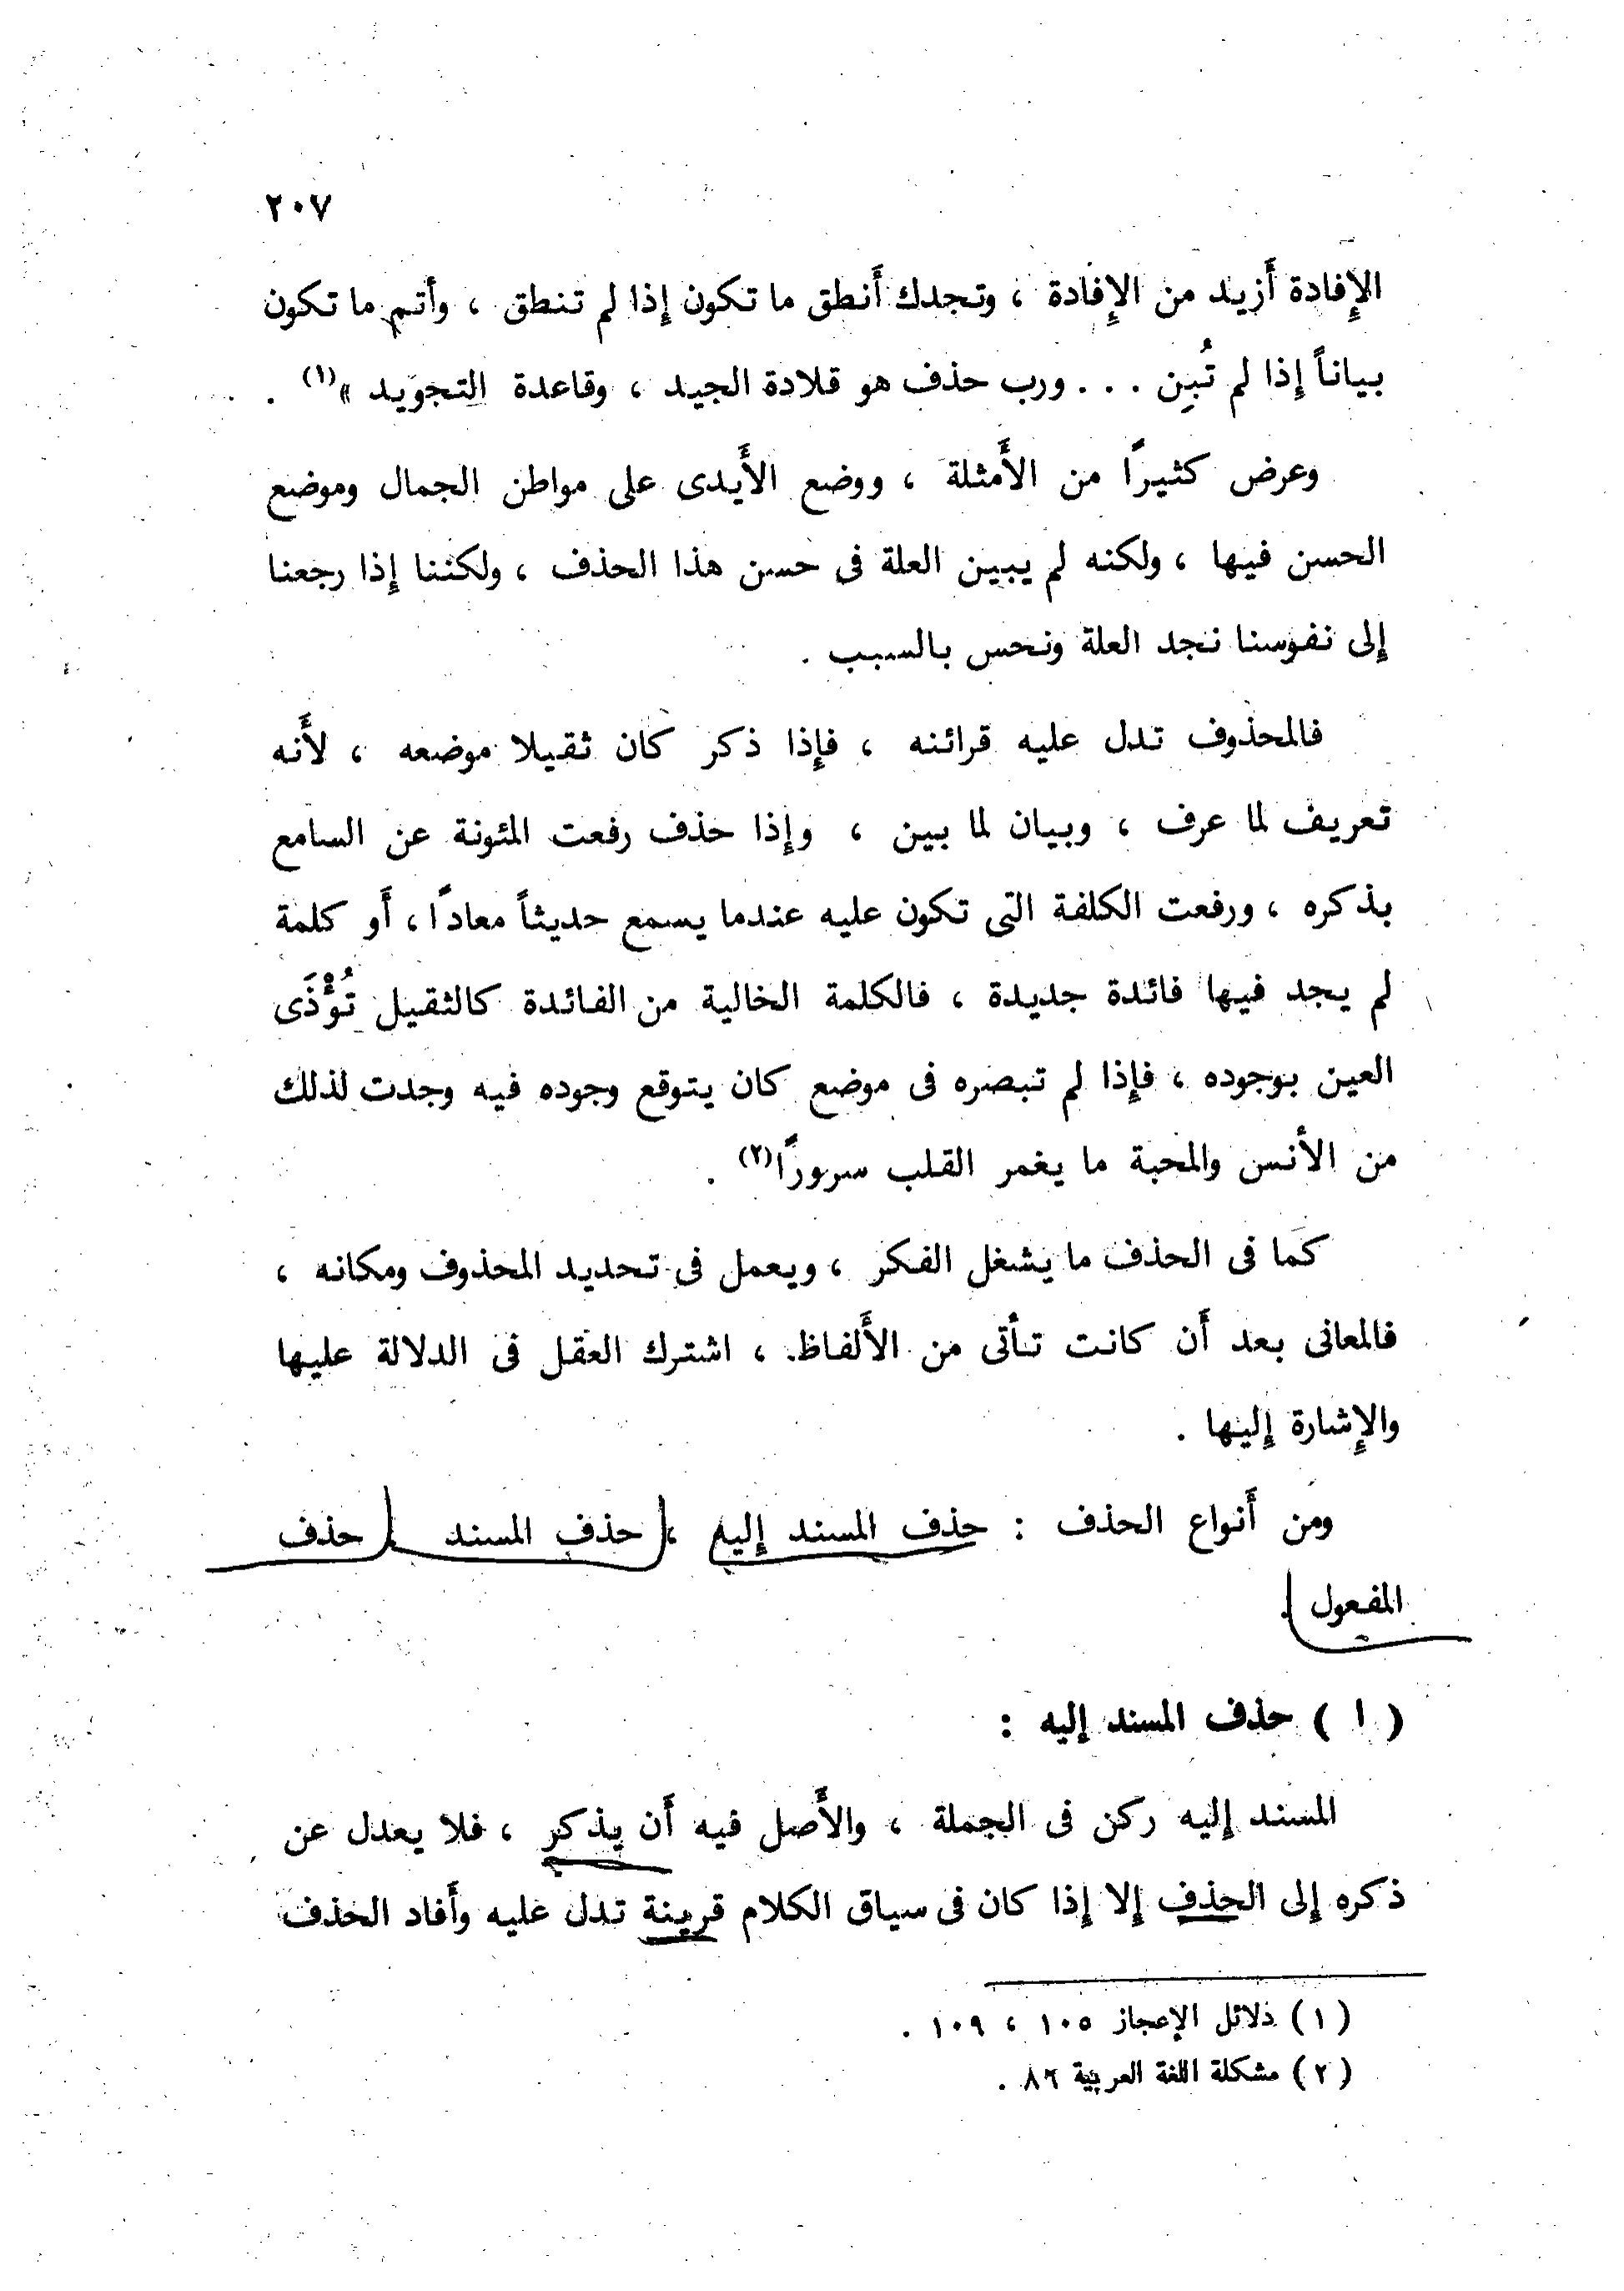 ٢٠٧
الإِفادة أَزيد من الإِفادة ، وتجدك أَنطق ما تكون إِذا لم تنطق ، وأتم ما تكون
بياناً إِذا لم تُبِن . . . ورب حذف هو قلادة الجيد ، وقاعدة التجويد »(١) .
وعرض كثيرًا من الأَمثلة ، ووضع الأَيدى على مواطن الجمال وموضع
الحسن فيها ، ولكنه لم يبين العلة فى حسن هذا الحذف ، ولكننا إِذا رجعنا
إِلى نفوسنا نجد العلة ونحس بالسبب .
فالمحذوف تدل عليه قرائنه ، فإِذا ذكر كان ثقيلا موضعه ، لأَنه
تعريف لما عرف ، وبيان لما بين ، وإِذا حذف رفعت المئونة عن السامع
بذكره ، ورفعت الكلفة التى تكون عليه عندما يسمع حديثاً معادًا ، أَو كلمة
لم يجد فيها فائدة جديدة ، فالكلمة الخالية من الفائدة كالثقيل تُؤْذَى
العين بوجوده ، فإِذا لم تبصره فى موضع كان يتوقع وجوده فيه وجدت لذلك
من الأنس والمحبة ما يغمر القلب سرورًا(٢) .
كما فى الحذف ما يشغل الفكر ، ويعمل فى تحديد المحذوف ومكانه ،
فالمعانى بعد أَن كانت تأتى من الأَلفاظ ، اشترك العقل فى الدلالة عليها
والإِشارة إِليها .
ومن أَنواع الحذف : حذف المسند إِليه ، حذف المسند ، حذف
المفعول .
( ١ ) حذف المسند إليه :
المسند إِليه ركن فى الجملة ، والأَصل فيه أَن يذكر ، فلا يعدل عن
ذكره إِلى الحذف إِلا إِذا كان فى سياق الكلام قرينة تدل عليه وأَفاد الحذف
( ١ ) دلائل الإعجاز ١٠٥ ، ١٠٩ .
( ٢ ) مشكلة اللغة العربية ٨٦ .